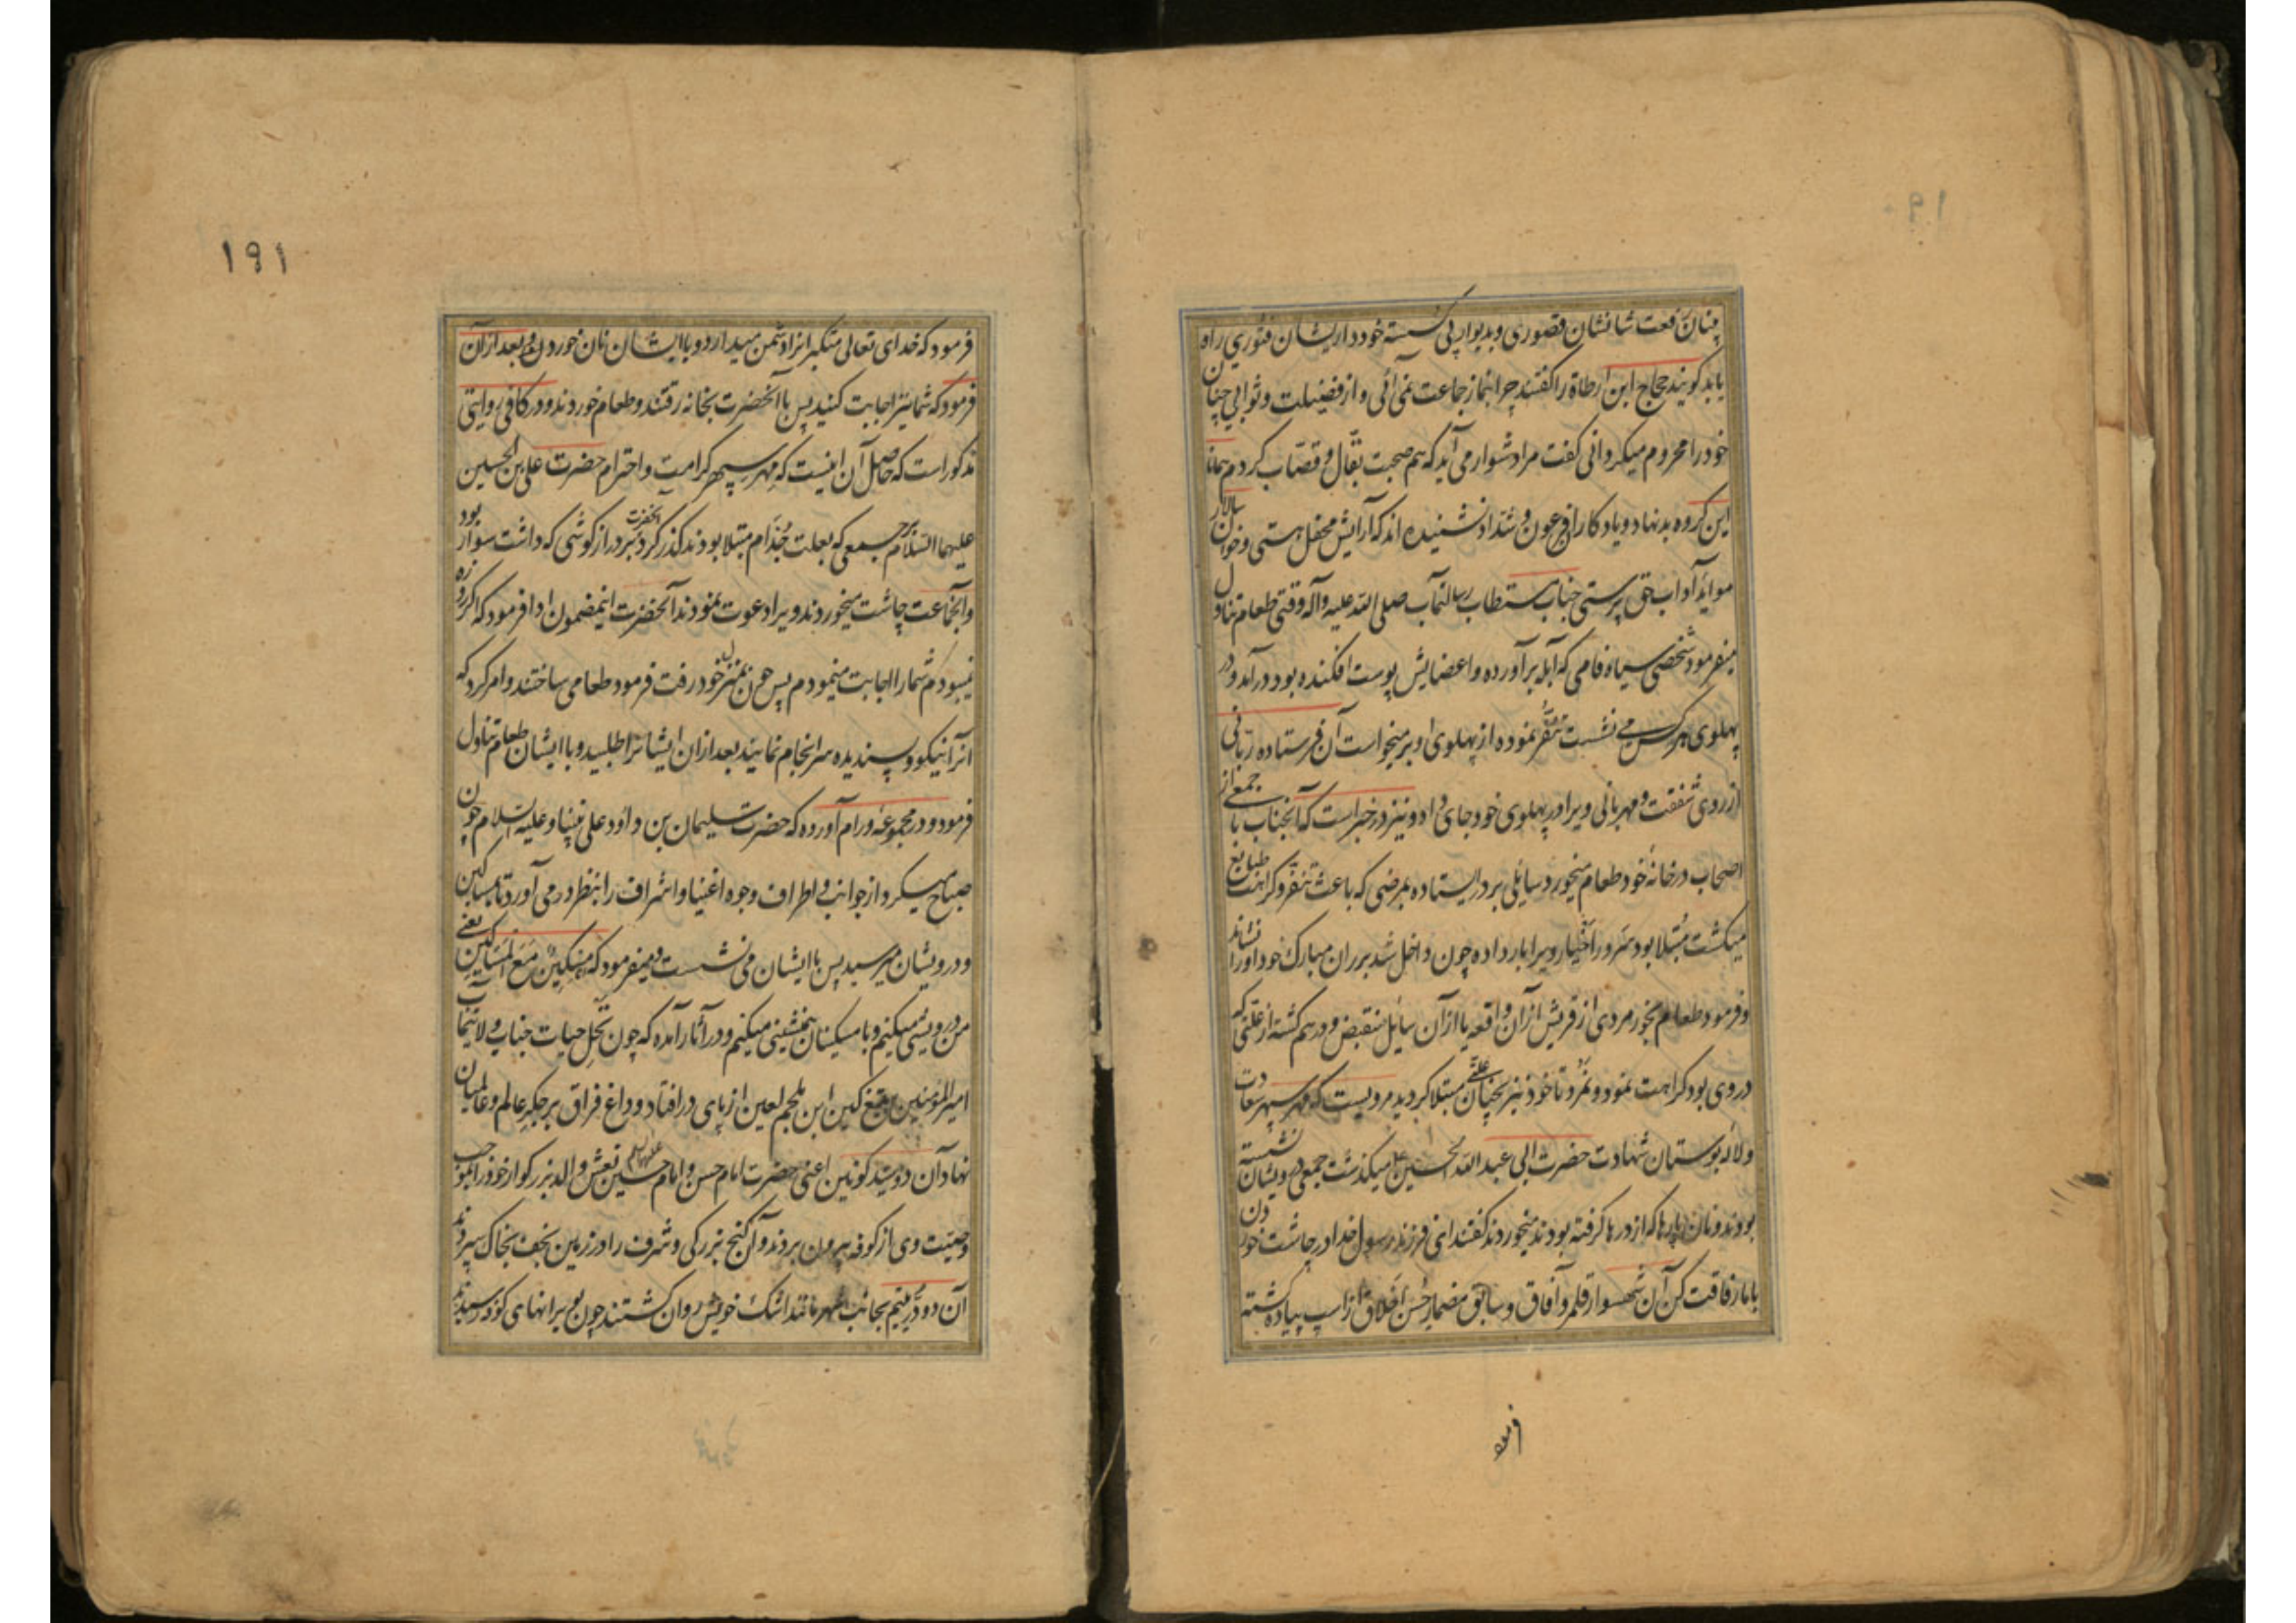 ۱۹۰
بنیان رفعت شانشان قصوری و بدیوار پی گسسته خودداریشان فتوری راه
یابد کویند حجاج ابن ارطاة را کفتند چرا بنماز جماعت نمی آئی و از فضیلت و ثوابی چنان
خود را محروم میکردانی کفت مرا دشوار می آید که هم صحبت بقال و قصاب کردم همانا
این کروه بدنهاد و یادکاران فرعون و شداد نشنیده اند که آرایش محفل هستی و خوان سالار
مواید آداب حق پرستی جناب مستطاب رسالتمآب صلی الله علیه وآله وقتی طعام تناول
میفرمود شخصی سیاه فامی که آبله برآورده و اعضایش پوست افکنده بود درآمد و در
پهلوی هر کس می نشست تنفر نموده از پهلوی او برمیخواست آن فرستاده ربانی
از روی شفقت و مهربانی ویرا در پهلوی خود جای داد و نیز در خبر است که آنجناب با جمعی از
اصحاب در خانه خود طعام میخورد سایلی بر در ایستاده بمرضی که باعث تنفر و کراهت طبایع
میکشت مبتلا بود سرور اخیار ویرا بار داده چون داخل شد بر ران مبارک خود او را نشاند
و فرمود طعام بخور مردی از قریش از آن واقعه یا از آن سایل منقبض و درهم کشته از علتی که
در وی بود کراهت نمود و نمرد تا خود نیز بچنان علتی مبتلا کردید مرویست که مهر سپهر سعادت
و لاله بوستان شهادت حضرت ابی عبد الله الحسین ع میکذشت جمعی درویشان نشسته
بودند و نان پارها که از درها کرفته بودند میخوردند کفتند ای فرزند رسول خدا در چاشت خوردن
با ما رفاقت کن آن شهسوار قلمرو آفاق و سابق مضمار حسن اخلاق از اسب پیاده کشته
فرمود
۱۹۱
فرمود که خدای تعالی متکبرانرا دشمن میدارد و با ایشان نان خوردن و بعد از آن
فرمود که شما نیز اجابت کنید پس با آنحضرت بخانه رفتند و طعام خوردند و در کافی روایتی
مذکور است که حاصل آن اینست که مهر سپهر کرامت و احترام حضرت علی بن الحسین
علیهما السلام بر جمعی که بعلت جذام مبتلا بودند کذر کرد آنحضرت بر درازکوشی که داشت سوار بود
و آنجماعت چاشت میخوردند ویرا دعوت نمودند آنحضرت اینمضمون ادا فرمود که اکر روزه
نمیبودم شما را اجابت مینمودم پس چون بمنزل خود رفت فرمود طعامی ساختند و امر کرد که
آنرا نیکو و پسندیده سرانجام نمایند بعد از آن ایشانرا طلبید و با ایشان طعام تناول
فرمود و در مجموعه ورام آورده که حضرت سلیمان بن داود علی نبینا و علیه السلام چون
صباح میکرد از جوانب و اطراف وجوه اغنیا و اشراف را بنظر در می آورد تا بمساکین
و درویشان میرسید پس با ایشان می نشست و میفرمود که مسکین مع المساکین یعنی
من درویشی میکنم و با مسکینان همنشینی میکنم و در آثار آمده که چون نخل حیات جناب ولایتمآب
امیرالمؤمنین بتیغ کین ابن ملجم لعین از پای در افتاد و داغ فراق بر جکر عالم و عالمیان
نهاد آن دو سید کونین اعنی حضرت امام حسن و امام حسین علیهما السلام نعش والد بزرکوار خود را بموجب
وصیت وی از کوفه بیرون بردند و آن کنج بزرکی و شرف را در زمین نجف بخاک سپردند
آن دو در یتیم بجانب شهر مانند اشک خویش روان کشتند چون بویرانهای کوفه رسیدند